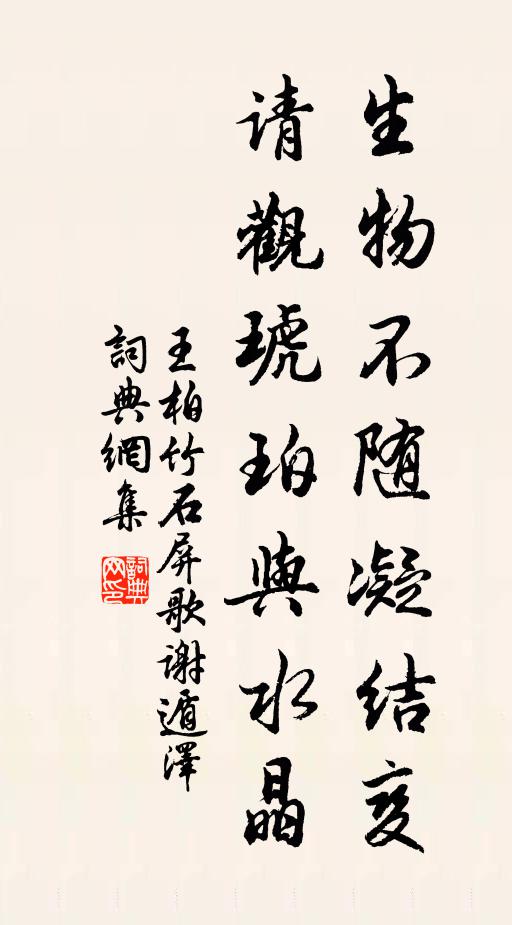 生物不随凝结变
请觀琥珀與水晶
王柏竹石屏歌谢遁澤
詞典網集
詞典网印